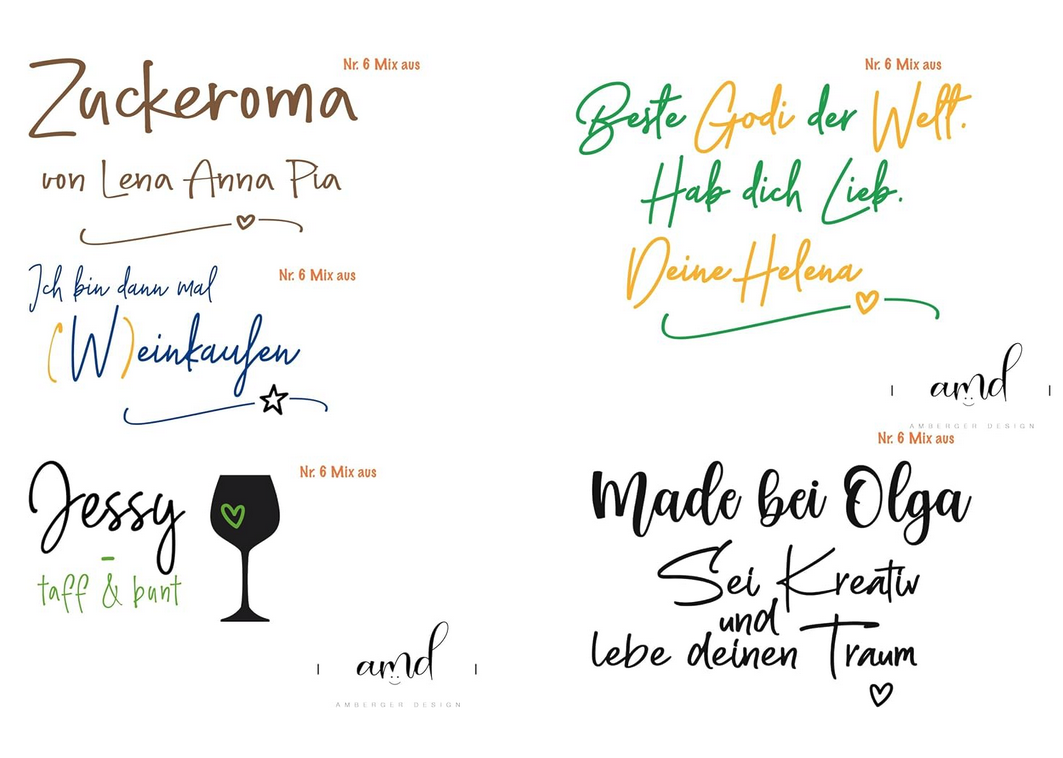 Zuckeroma
Nr. 6 Mix aus
von Lena Anna Pia
Ich bin dann mal
Nr. 6 Mix aus
(W)einkaufen
Jessy
Nr. 6 Mix aus
-
taff & bunt
amd
AMBERGER DESIGN
Nr. 6 Mix aus
Beste Godi der Welt.
Hab dich Lieb.
Deine Helena
amd
AMBERGER DESIGN
Nr. 6 Mix aus
Made bei Olga
Sei Kreativ
und
lebe deinen Traum